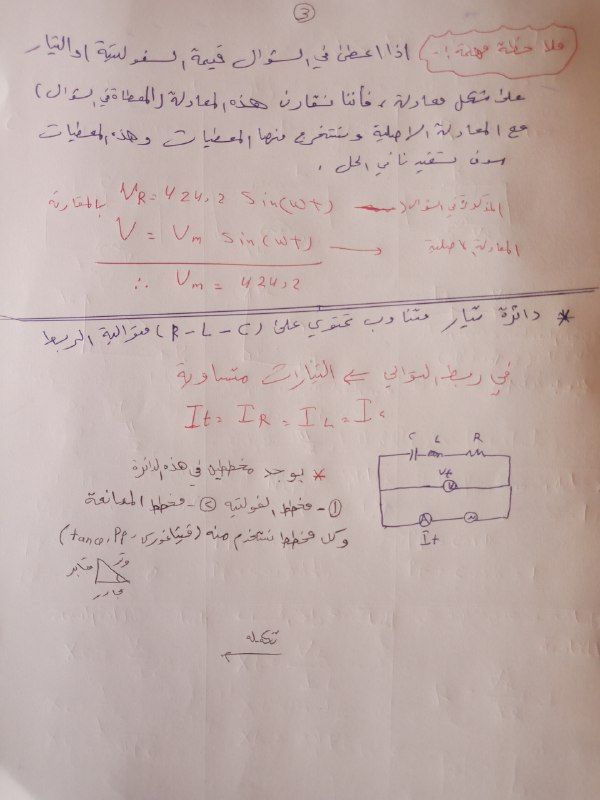 3
ملاحظة مهمة !: اذا اعطى في السؤال قيمة الفولتية او التيار
على شكل معادلة ، فأننا سنقارن هذه المعادلة (المعطاة في السؤال)
مع المعادلة الاصلية ونستخرج منها المعطيات وهذه المعطيات
سوف تستفيدنا في الحل .
المذكورة في السؤال ← VR = 424,2 Sin(wt) بالمقارنة
المعادلة الاصلية → V = Vm Sin(wt)
∴ Vm = 424,2
* دائرة تيار متناوب تحتوي على (R-L-C) متوالية الربط
في ربط التوالي ⇐ التيارات متساوية
It = IR = IL = Ic
C L R
* يوجد مخططين في هذه الدائرة
Vt
V
① - مخطط الفولتية ② - مخطط الممانعة
وكل مخطط نستخدم منه (فيثاغورس، Pf، tanφ)
A
It
وتر
مقابل
مجاور
تكملة